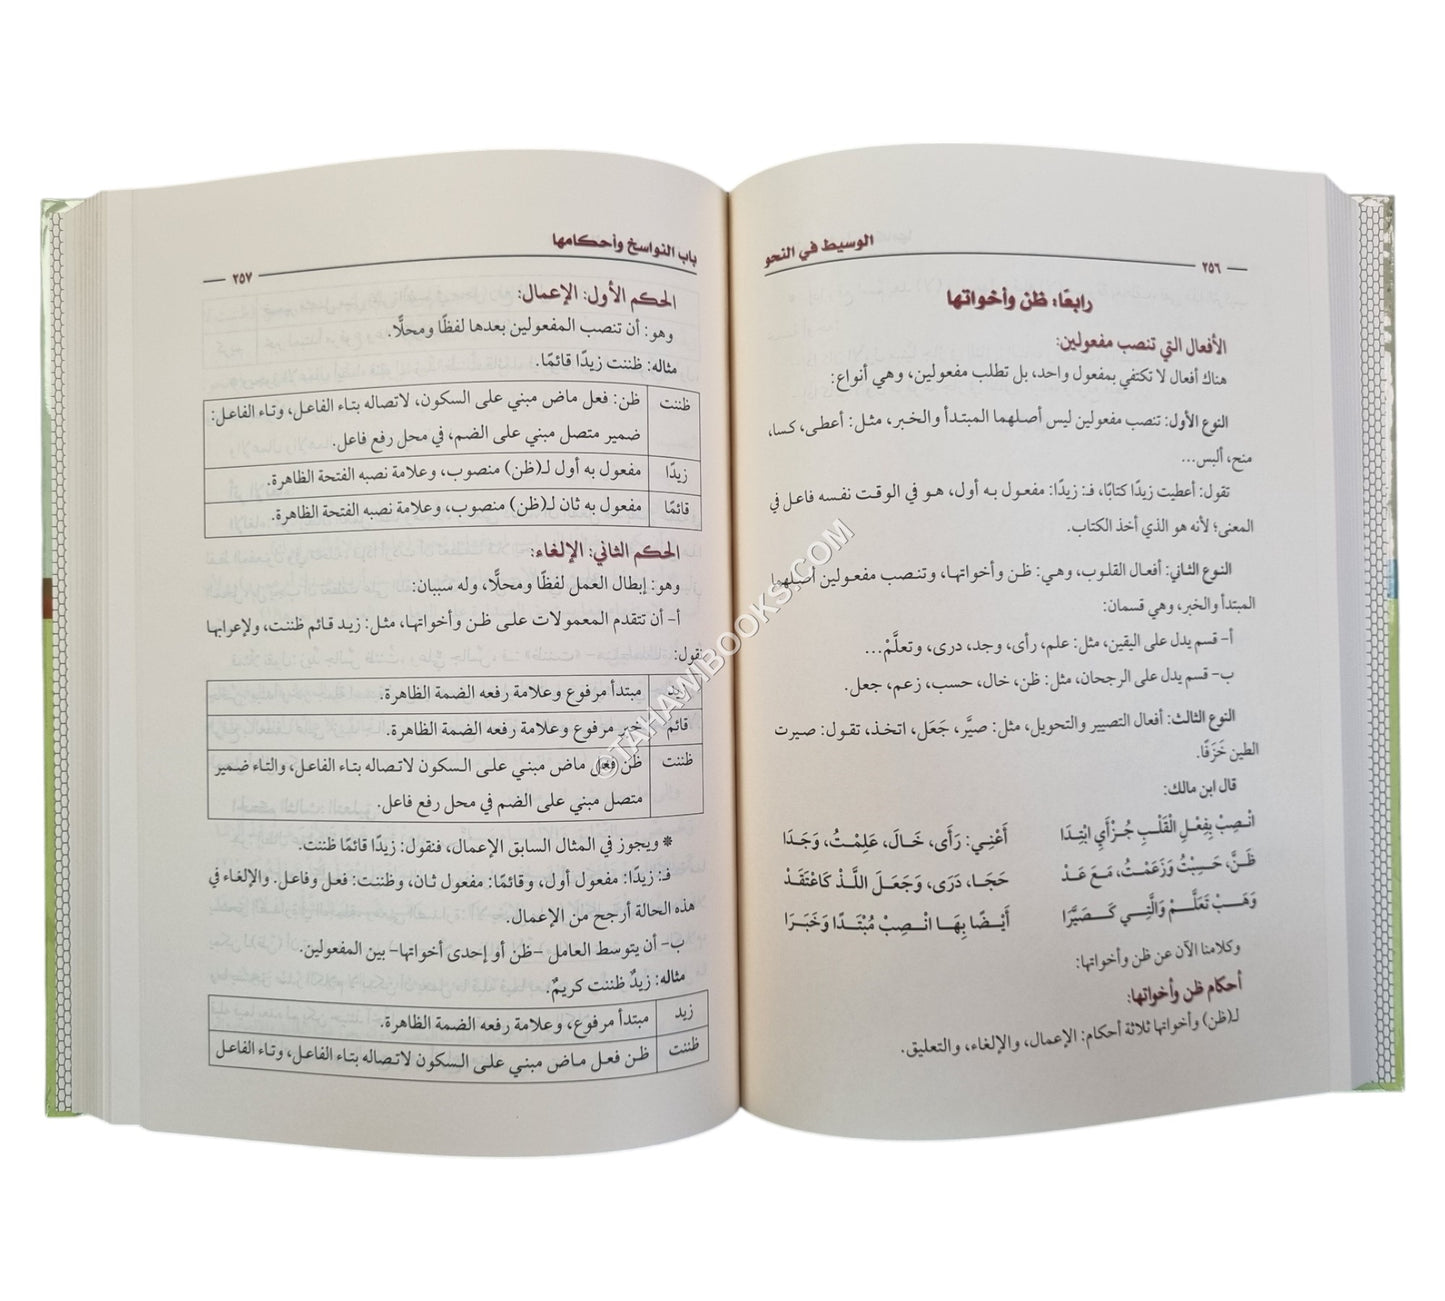 الوسيط في النحو
٢٥٦
رابعًا: ظن وأخواتها
الأفعال التي تنصب مفعولين:
هناك أفعال لا تكتفي بمفعول واحد، بل تطلب مفعولين، وهي أنواع:
النوع الأول: تنصب مفعولين ليس أصلهما المبتدأ والخبر، مثل: أعطى، كسا،
منح، ألبس...
تقول: أعطيت زيدًا كتابًا، فـ: زيدًا: مفعول به أول، هو في الوقت نفسه فاعل في
المعنى؛ لأنه هو الذي أخذ الكتاب.
النوع الثاني: أفعال القلوب، وهي: ظن وأخواتها، وتنصب مفعولين أصلهما
المبتدأ والخبر، وهي قسمان:
أ- قسم يدل على اليقين، مثل: علم، رأى، وجد، درى، وتعلَّمْ...
ب- قسم يدل على الرجحان، مثل: ظن، خال، حسب، زعم، جعل.
النوع الثالث: أفعال التصيير والتحويل، مثل: صيَّر، جَعَل، اتخذ، تقول: صيرت
الطين خَزَفًا.
قال ابن مالك:
انْصِبْ بِفِعْلِ الْقَلْبِ جُزْأَيِ ابْتِدَا أَعْنِي: رَأَى، خَالَ، عَلِمْتُ، وَجَدَا
ظَنَّ، حَسِبْتُ وَزَعَمْتُ، مَعَ عَدْ حَجَا، دَرَى، وَجَعَلَ اللَّذْ كَاعْتَقَدْ
وَهَبْ تَعَلَّمْ وَالَّتِي كَصَيَّرَا أَيْضًا بِهَا انْصِبْ مُبْتَدًا وَخَبَرَا
وكلامنا الآن عن ظن وأخواتها:
أحكام ظن وأخواتها:
لـ(ظن) وأخواتها ثلاثة أحكام: الإعمال، والإلغاء، والتعليق.
باب النواسخ وأحكامها
٢٥٧
الحكم الأول: الإعمال:
وهو: أن تنصب المفعولين بعدها لفظًا ومحلًّا.
مثاله: ظننت زيدًا قائمًا.
ظننت ظن: فعل ماض مبني على السكون، لاتصاله بتاء الفاعل، وتاء الفاعل:
ضمير متصل مبني على الضم، في محل رفع فاعل.
زيدًا مفعول به أول لـ(ظن) منصوب، وعلامة نصبه الفتحة الظاهرة.
قائمًا مفعول به ثان لـ(ظن) منصوب، وعلامة نصبه الفتحة الظاهرة.
الحكم الثاني: الإلغاء:
وهو: إبطال العمل لفظًا ومحلًّا، وله سببان:
أ- أن تتقدم المعمولات على ظن وأخواتها، مثل: زيد قائم ظننت، ولإعرابها
نقول:
زيد مبتدأ مرفوع وعلامة رفعه الضمة الظاهرة.
قائم خبر مرفوع وعلامة رفعه الضمة الظاهرة.
ظننت ظن فعل ماض مبني على السكون لاتصاله بتاء الفاعل، والتاء ضمير
متصل مبني على الضم في محل رفع فاعل.
* ويجوز في المثال السابق الإعمال، فنقول: زيدًا قائمًا ظننت.
فـ: زيدًا: مفعول أول، وقائمًا: مفعول ثان، وظننت: فعل وفاعل. والإلغاء في
هذه الحالة أرجح من الإعمال.
ب- أن يتوسط العامل -ظن أو إحدى أخواتها- بين المفعولين.
مثاله: زيدٌ ظننت كريمٌ.
زيد مبتدأ مرفوع، وعلامة رفعه الضمة الظاهرة.
ظننت ظن فعل ماض مبني على السكون لاتصاله بتاء الفاعل، وتاء الفاعل
©TAHAWIBOOKS.COM